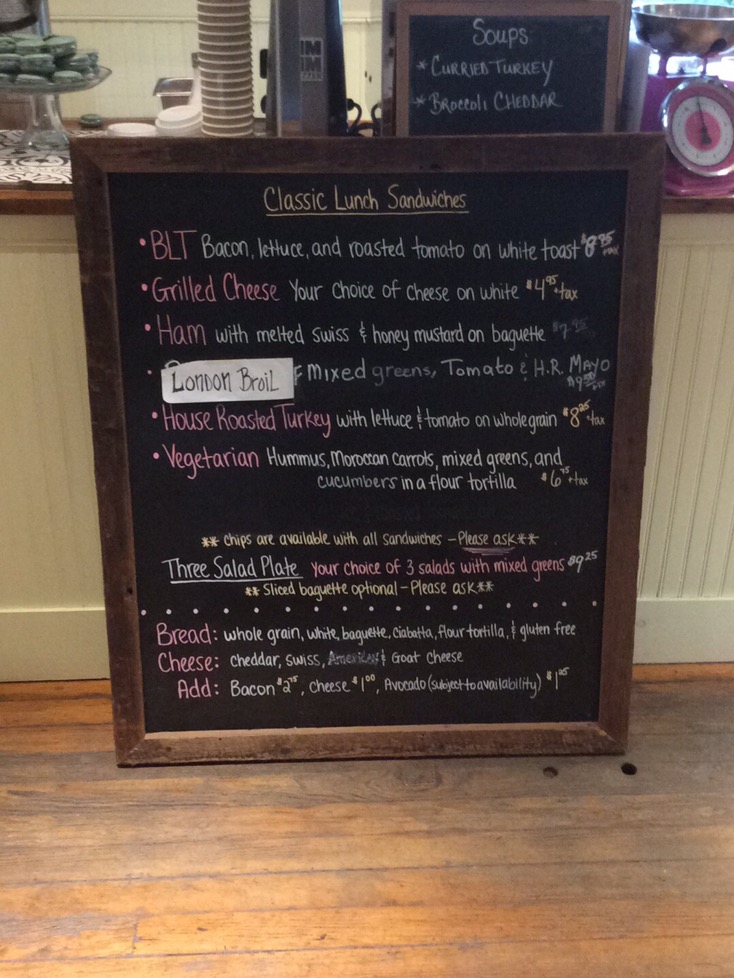 Soups:
* Curried Turkey
* Broccoli Cheddar
Classic Lunch Sandwiches
• BLT Bacon, lettuce, and roasted tomato on white toast $8.95 +tax
• Grilled Cheese Your choice of cheese on white $4.95 +tax
• Ham with melted Swiss & honey mustard on baguette
London Broil Mixed greens, Tomato & H.R. Mayo
• House Roasted Turkey with lettuce & tomato on whole grain $8.25 +tax
• Vegetarian Hummus, Moroccan carrots, mixed greens, and
cucumbers in a flour tortilla $6.75 +tax
** Chips are available with all sandwiches - Please ask **
Three Salad Plate Your choice of 3 salads with mixed greens $9.25
** Sliced baguette optional - Please ask **
Bread: whole grain, white, baguette, ciabatta, flour tortilla, & gluten free
Cheese: cheddar, swiss, American & Goat cheese
Add: Bacon $2.75, cheese $1.00, Avocado (subject to availability) $1.25